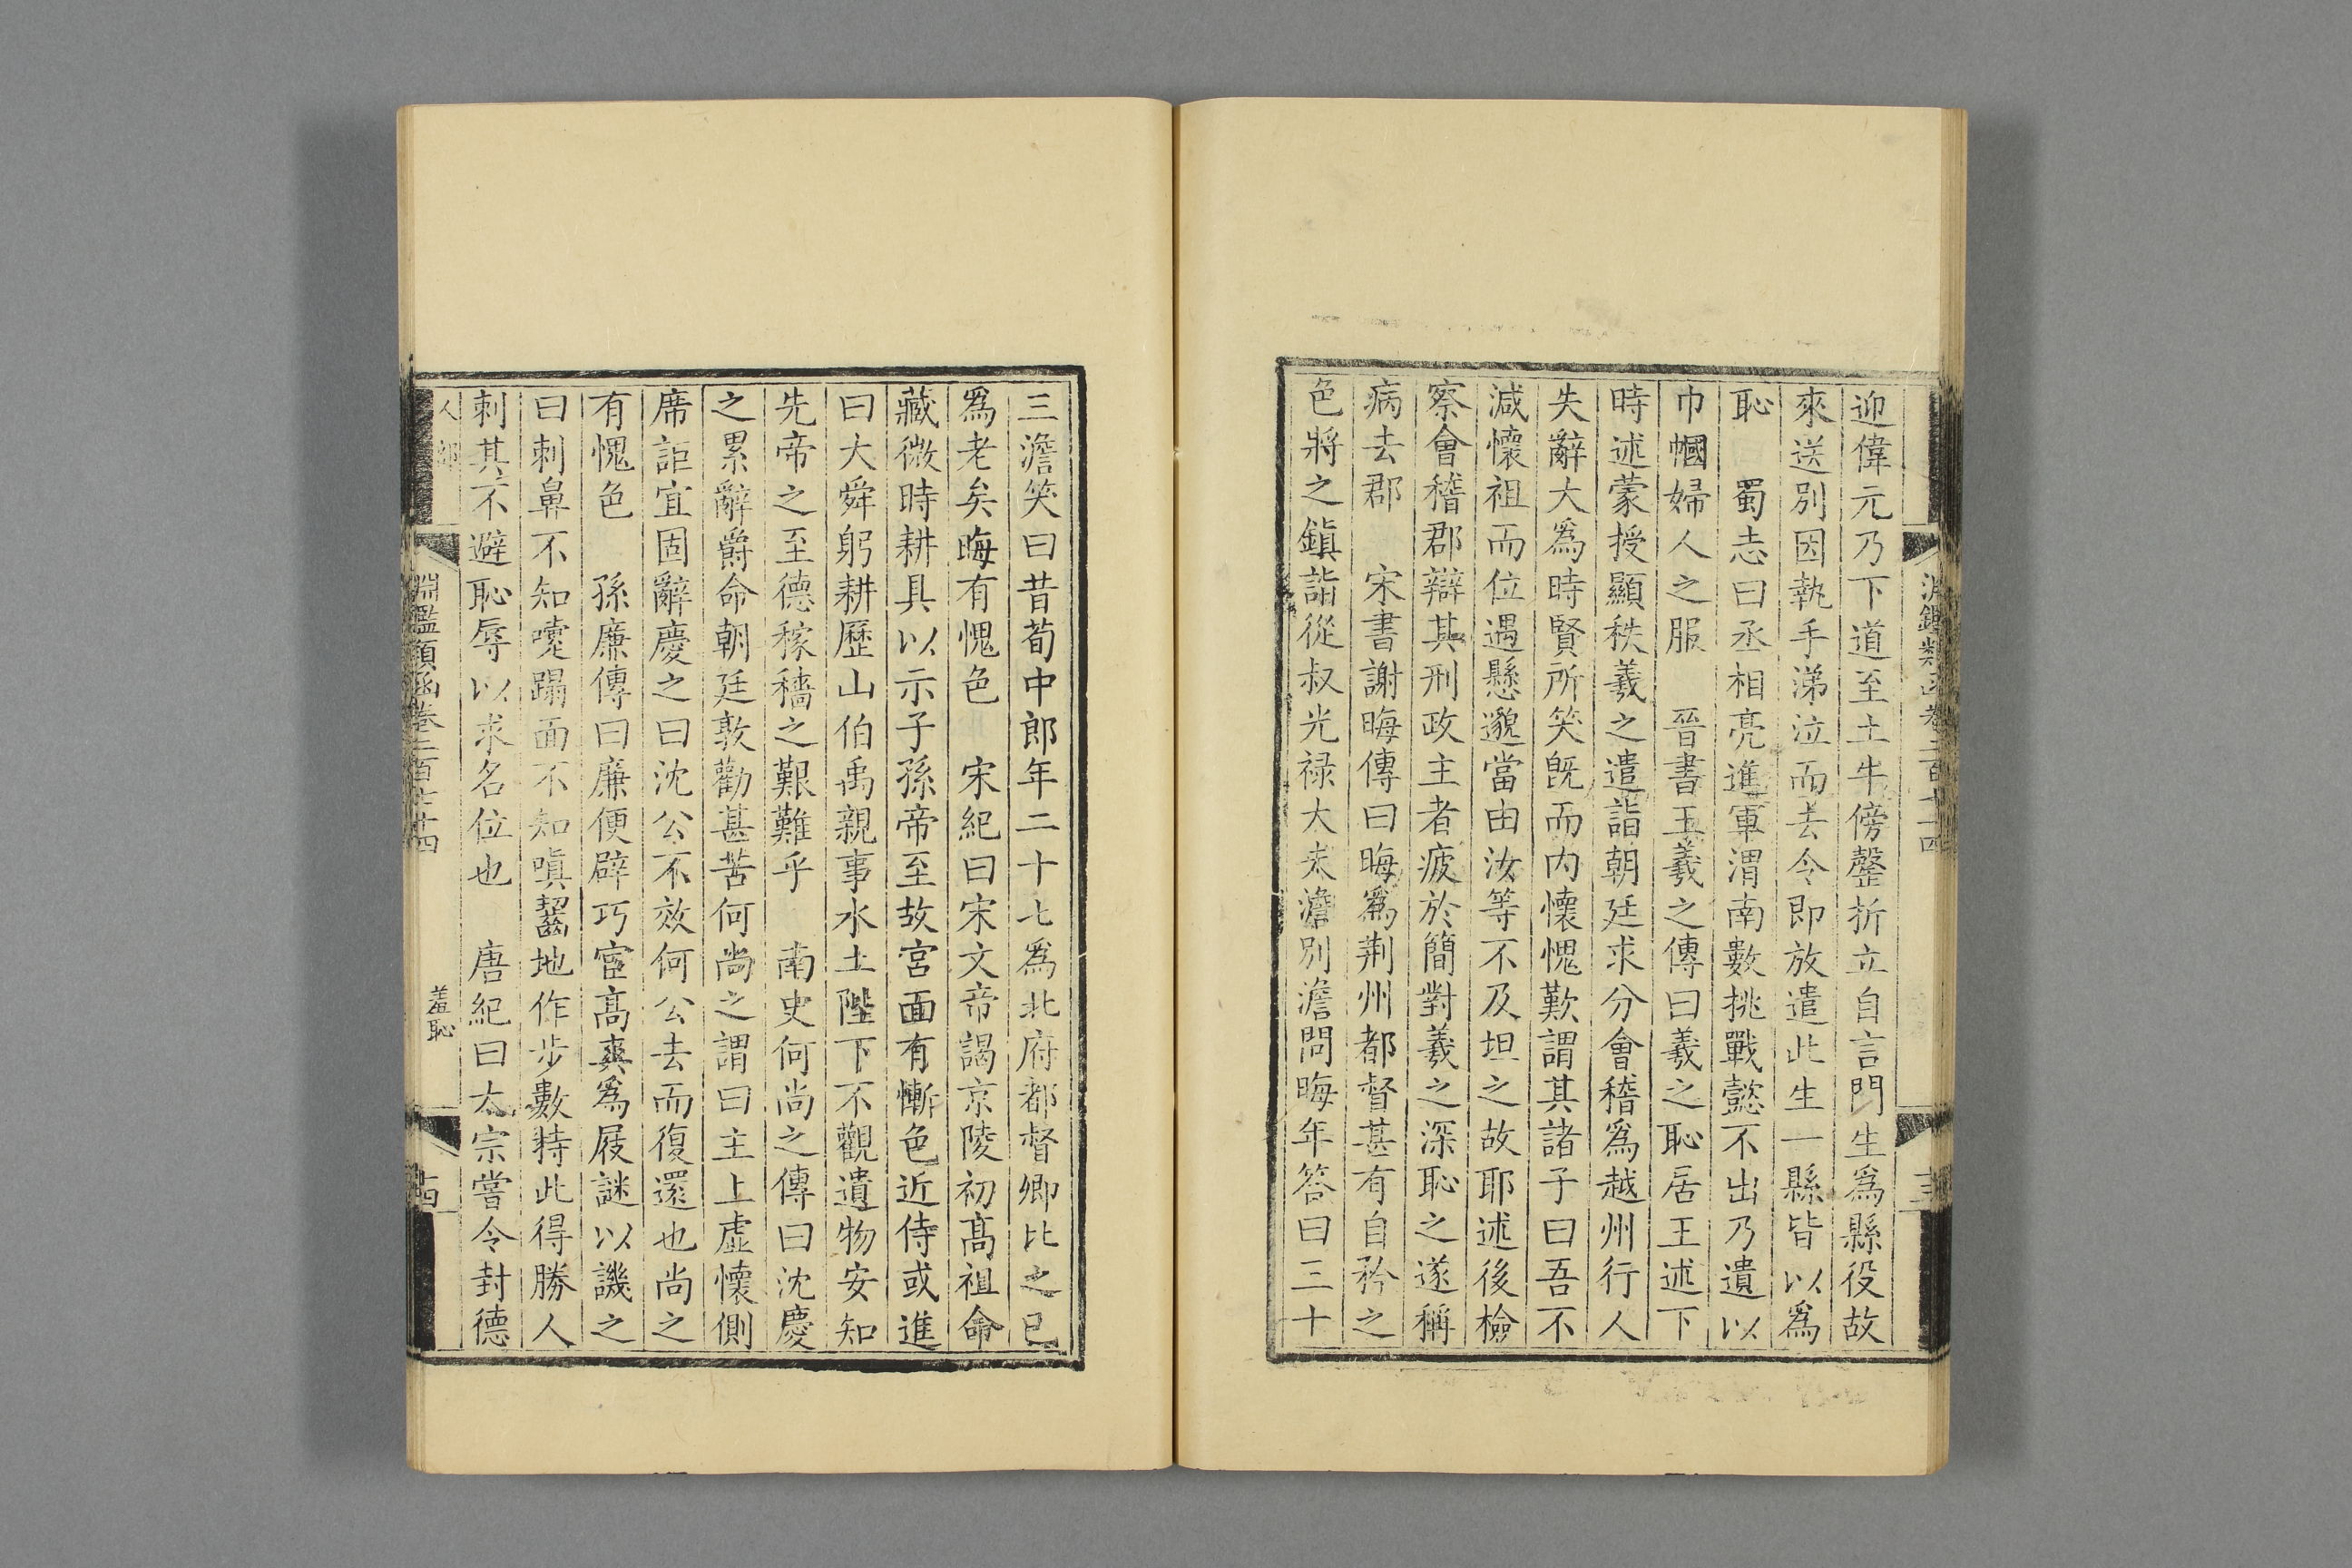 迎偉元乃下道至土牛傍罄折立自言門生爲縣役故
來送別因執手涕泣而去令即放遣此生一縣皆以爲
恥　蜀志曰丞相亮進軍渭南數挑戰懿不出乃遺以
巾幗婦人之服　晉書王羲之傳曰羲之恥居王述下
時述蒙授顯秩羲之遣詣朝廷求分會稽爲越州行人
失辭大爲時賢所笑旣而内懷愧歎謂其諸子曰吾不
減懷祖而位遇懸邈當由汝等不及坦之故耶述後檢
察會稽郡辯其刑政主者疲於簡對羲之深恥之遂稱
病去郡　宋書謝晦傳曰晦爲荆州都督甚有自矜之
色將之鎮詣從叔光禄大夫澹別澹問晦年答曰三十
三澹笑曰昔荀中郎年二十七爲北府都督卿比之已
爲老矣晦有愧色　宋紀曰宋文帝謁京陵初髙祖命
藏微時耕具以示子孫帝至故宫面有慚色近侍或進
曰大舜躬耕歷山伯禹親事水土陛下不觀遺物安知
先帝之至德稼穡之艱難乎　南史何尚之傳曰沈慶
之累辭爵命朝廷敦勸甚苦何尚之謂曰主上虚懷側
席詎宜固辭慶之曰沈公不效何公去而復還也尚之
有愧色　孫廉傳曰廉便辟巧宦髙爽爲屐謎以譏之
曰刺鼻不知嚏蹋面不知嗔齧齒地作步數持此得勝人
刺其不避恥辱以求名位也　唐紀曰太宗嘗令封德
淵鑑類函卷三百十四
羞恥